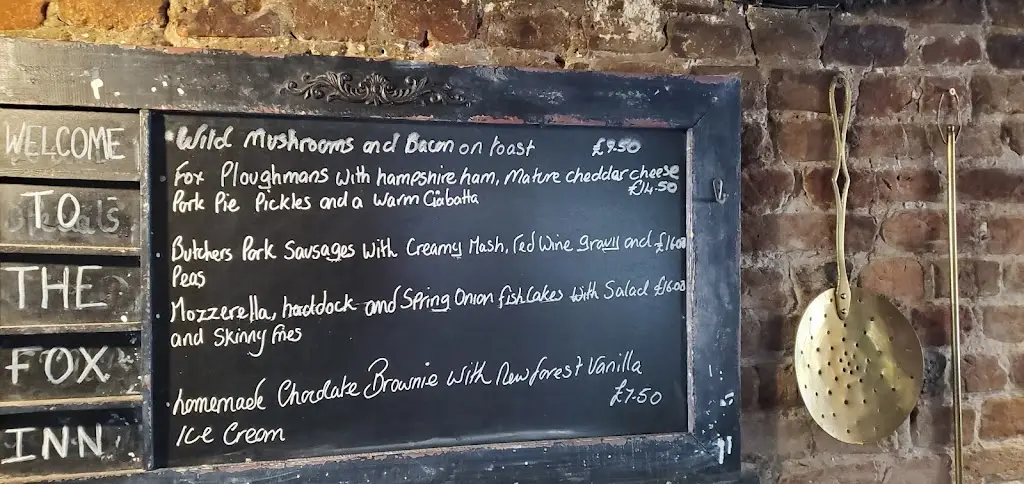 WELCOME
TO
THE
FOX
INN
Wild Mushrooms and Bacon on toast £9.50
Fox Ploughmans with hampshire ham, Mature cheddar cheese
£14.50
Pork Pie Pickles and a warm Ciabatta
Butchers Pork Sausages with Creamy Mash, red wine gravy and £16.00
Peas
Mozzerella, haddock and Spring Onion fishcakes with Salad £16.00
and Skinny fries
homemade Chocolate Brownie with New forest Vanilla
£7.50
Ice Cream